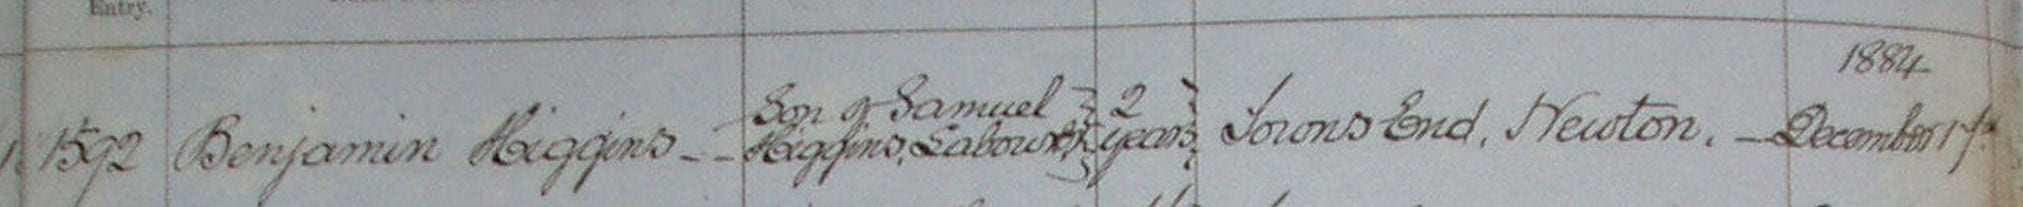 Entry.
1884
1592 Benjamin Higgins - - Son of Samuel 2 Towns End, Newton. - December 1st
Higgins, Labourer years